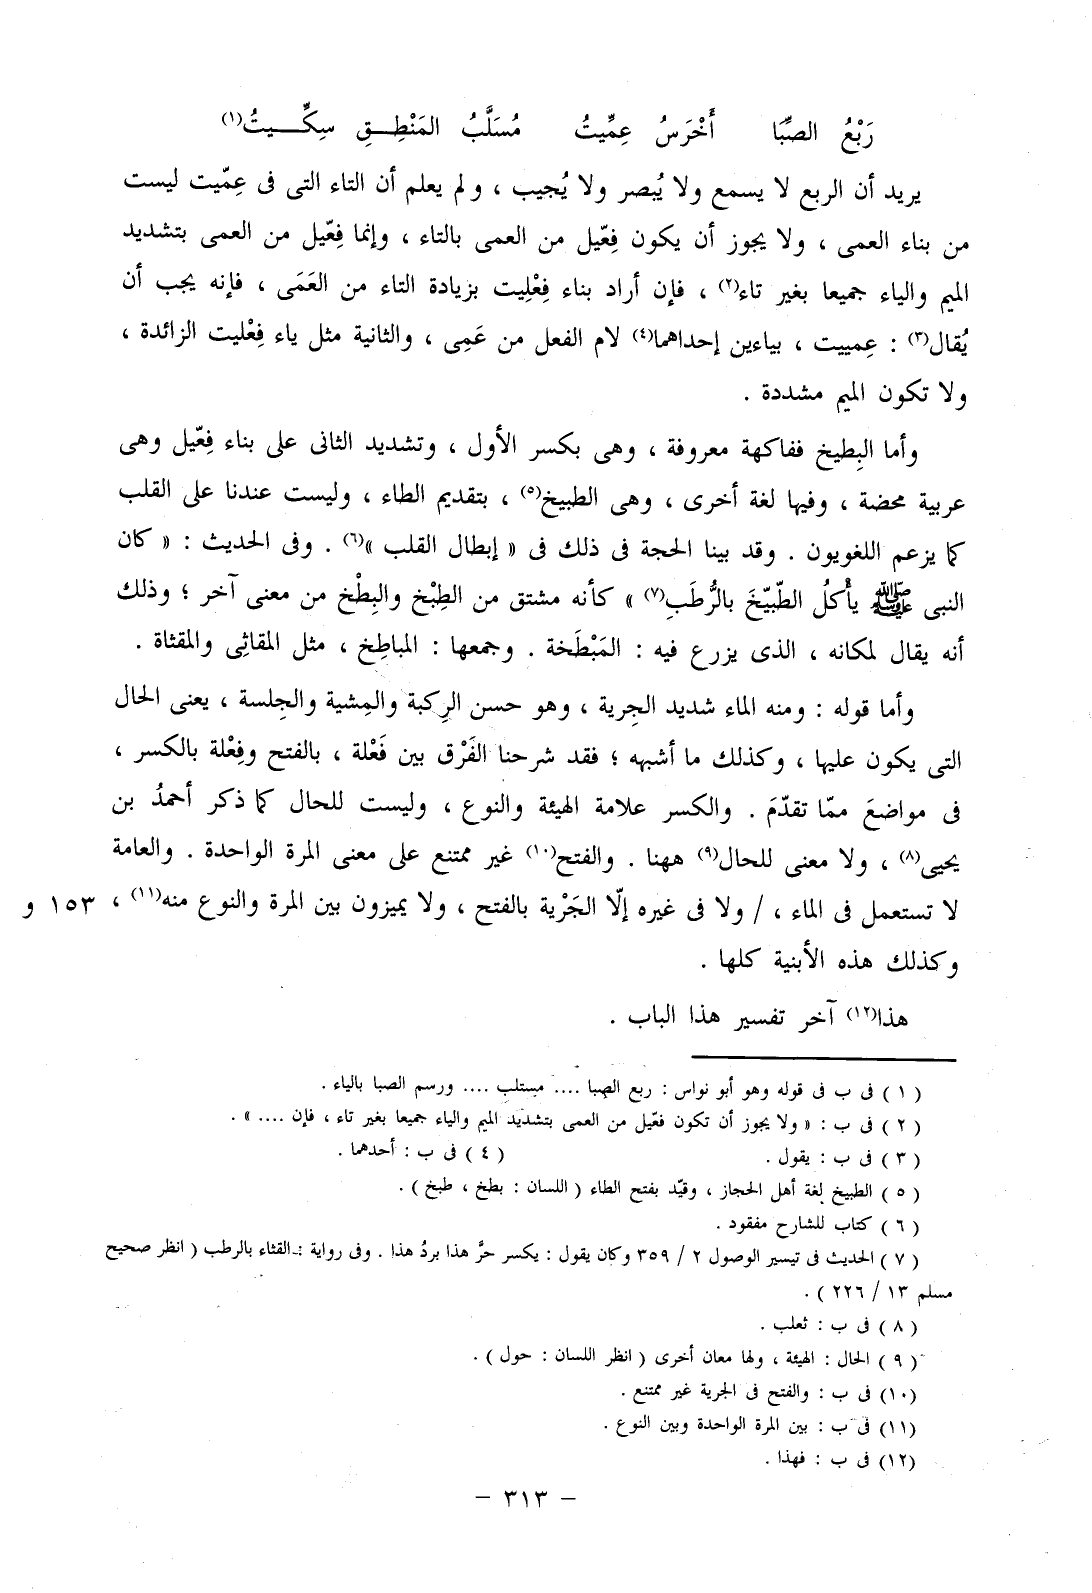 رَبْعُ الصِّبَا أَخْرَسُ عِمِّيتُ مُسَلَّبُ المَنْطِـــقِ سِكِّـــيتُ(١)
يريد أن الربع لا يسمع ولا يُبصر ولا يُجيب ، ولم يعلم أن التاء التى فى عِمّيت ليست
من بناء العمى ، ولا يجوز أن يكون فِعّيل من العمى بالتاء ، وإنما فِعّيل من العمى بتشديد
الميم والياء جميعا بغير تاء(٢) ، فإن أراد بناء فِعْلِيت بزيادة التاء من العَمَى ، فإنه يجب أن
يُقال(٣) : عِمييت ، بياءين إحداهما(٤) لام الفعل من عَمِى ، والثانية مثل ياء فِعْليت الزائدة ،
ولا تكون الميم مشددة .
وأما البِطيخ ففاكهة معروفة ، وهى بكسر الأول ، وتشديد الثانى على بناء فِعّيل وهى
عربية محضة ، وفيها لغة أخرى ، وهى الطبيخ(٥) ، بتقديم الطاء ، وليست عندنا على القلب
كما يزعم اللغويون . وقد بينا الحجة فى ذلك فى « إبطال القلب »(٦) . وفى الحديث : « كان
النبى ﷺ يأْكُلُ الطّبيّخَ بالرُّطَبِ(٧) » كأنه مشتق من الطِبْخ والبِطْخ من معنى آخر ؛ وذلك
أنه يقال لمكانه ، الذى يزرع فيه : المَبْطَخة . وجمعها : المباطِخ ، مثل المقاثِى والمقثاة .
وأما قوله : ومنه الماء شديد الجِرية ، وهو حسن الرِكبة والمِشية والجِلسة ، يعنى الحال
التى يكون عليها ، وكذلك ما أشبهه ؛ فقد شرحنا الفَرْق بين فَعْلة ، بالفتح وفِعْلة بالكسر ،
فى مواضعَ ممّا تقدّمَ . والكسر علامة الهيئة والنوع ، وليست للحال كما ذكر أحمدُ بن
يحيى(٨) ، ولا معنى للحال(٩) ههنا . والفتح(١٠) غير ممتنع على معنى المرة الواحدة . والعامة
لا تستعمل فى الماء ، / ولا فى غيره إلّا الجَرْية بالفتح ، ولا يميزون بين المرة والنوع منه(١١) ، ١٥٣ و
وكذلك هذه الأبنية كلها .
هذا(١٢) آخر تفسير هذا الباب .
( ١ ) فى ب فى قوله وهو أبو نواس : ربع الصبا .... مستلب .... ورسم الصبا بالياء .
( ٢ ) فى ب : « ولا يجوز أن تكون فعّيل من العمى بتشديد الميم والياء جميعا بغير تاء ، فإن .... » .
( ٣ ) فى ب : يقول . ( ٤ ) فى ب : أحدهما .
( ٥ ) الطبيخ لغة أهل الحجاز ، وقيّد بفتح الطاء ( اللسان : بطخ ، طبخ ) .
( ٦ ) كتاب للشارح مفقود .
( ٧ ) الحديث فى تيسير الوصول ٢ / ٣٥٩ وكان يقول : يكسر حرَّ هذا بردُ هذا . وفى رواية : القثاء بالرطب ( انظر صحيح
مسلم ١٣ / ٢٢٦ ) .
( ٨ ) فى ب : ثعلب .
( ٩ ) الحال : الهيئة ، ولها معان أخرى ( انظر اللسان : حول ) .
(١٠) فى ب : والفتح فى الجرية غير ممتنع .
(١١) فى ب : بين المرة الواحدة وبين النوع .
(١٢) فى ب : فهذا .
– ٣١٣ –